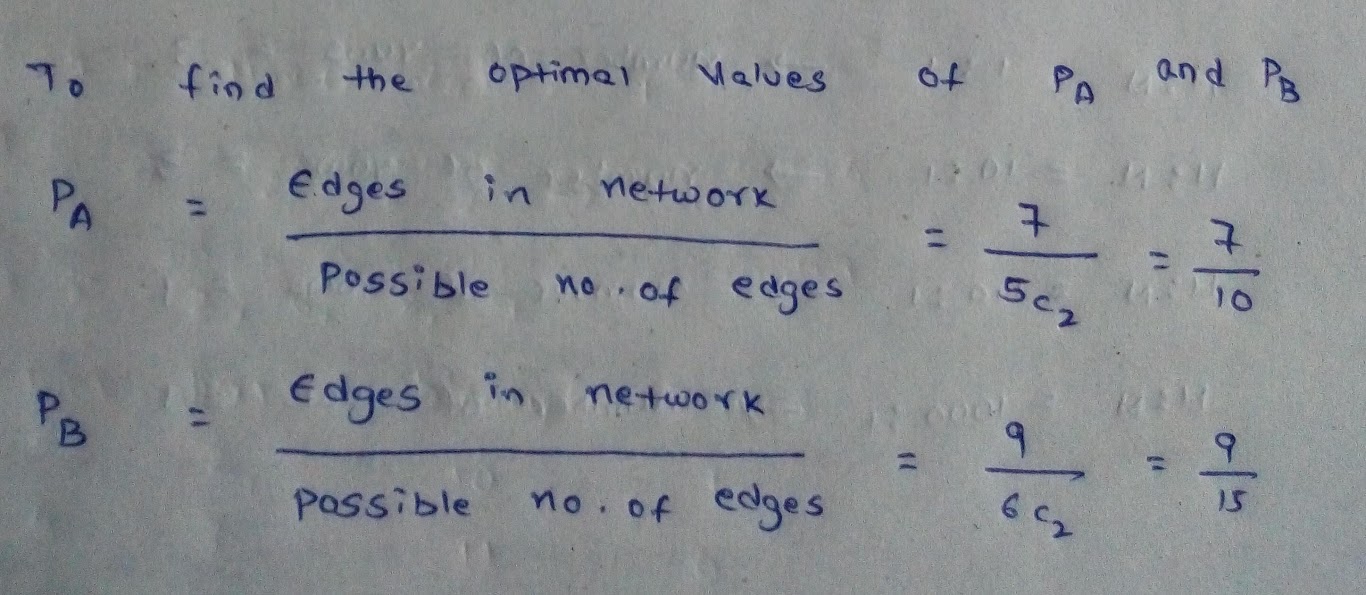 To find the optimal values of PA and PB
PA = Edges in network / Possible no. of edges = 7 / 5c2 = 7 / 10
PB = Edges in network / possible no. of edges = 9 / 6c2 = 9 / 15